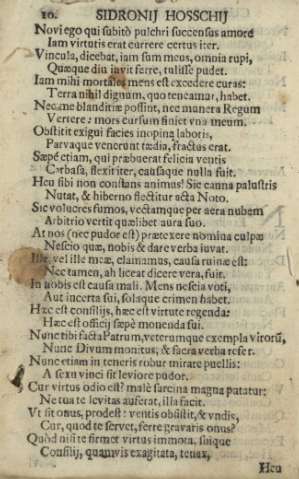 10. SIDRONII HOSSCHII
Novi ego qui subitò pulchri succensus amore
Iam virtutis erat currere certus iter.
Vincula, dicebat, iam sum meus, omnia rupi,
Quæque diu invit ferre, tulisse pudet.
Iam mihi mortales mens est excedere curas:
Terra nihil dignum, quo teneamur, habet.
Nec me blanditiæ possint, nec munera Regum
Vertere: mors cursum finiet vna meum.
Obstitit exigui facies inopina laboris,
Parvaque venerunt tædia, fractus erat.
Sæpè etiam, qui præbuerat felicia ventis
Carbasa, flexit iter, causaque nulla fuit.
Heu sibi non constans animus! Sic canna palustris
Nutat, & hiberno flectitur acta Noto.
Sic volucres fumos, vectamque per aera nubem
Arbitrio vertit quælibet aura suo.
At nos (nec pudor est) prætexere nomina culpæ
Nescio quæ, nobis & dare verba iuvat.
Ille, vel ille meæ, clamamus, causa ruinæ est:
Nec tamen, ah liceat dicere vera, fuit.
In nobis est causa mali. Mens nescia voti,
Aut incerta sui, solaque crimen habet.
Hæc est consilijs, hæc est virtute regenda:
Hæc est officij sæpè monenda sui.
Nunc tibi facta Patrum, veterumque exempla virorũ,
Nunc Divum monitus, & sacra verba refer.
Nunc etiam in teneris robur mirare puellis:
A sexu vinci sit leviore pudor.
Cur virtus odio est? malè sarcina magna putatur:
Ne tua te levitas auferat, illa facit.
Vt sit onus, prodest: ventis obsistit, & vndis,
Cur, quod te servet, ferre gravaris onus?
Quòd nisi te firmet virtus immota, suique
Consilij, quamvis exagitata, tenax,
Heu